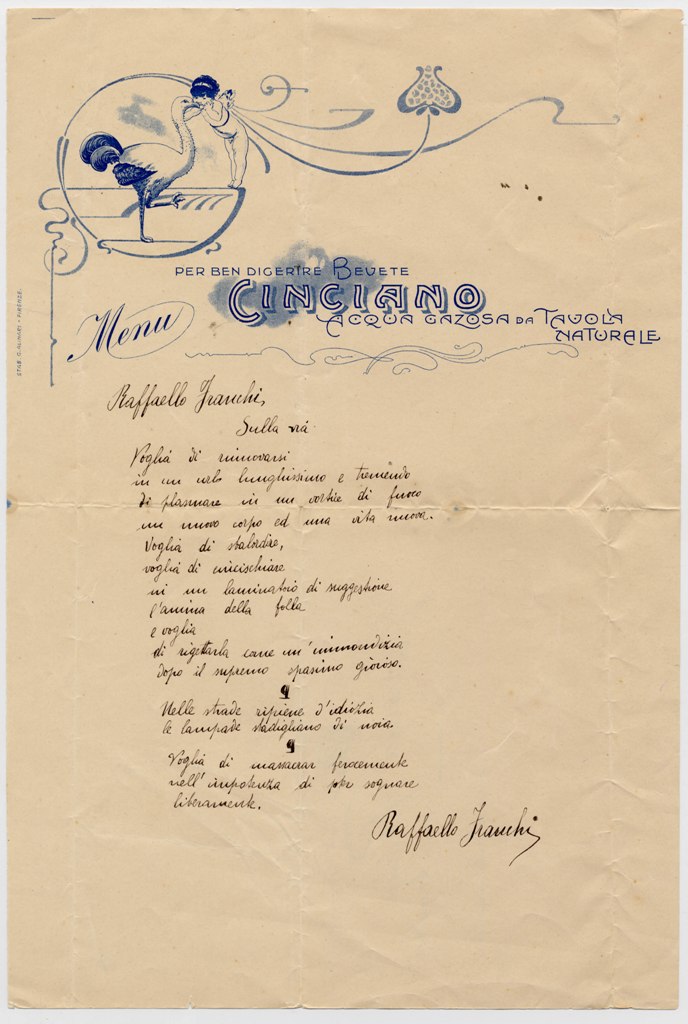 PER BEN DIGERIRE BEVETE
CINCIANO
ACQUA GAZOSA DA TAVOLA
NATURALE
Menu
STAB. G. ALINARI - FIRENZE.
Raffaello Franchi,
Sulla via
Voglia di rinnovarsi
in un urlo lunghissimo e tremendo
di plasmare in un vortice di fuoco
un nuovo corpo ed una vita nuova.
Voglia di sbalordire,
voglia di cincischiare
in un laminatoio di suggestione
l'anima della folla
e voglia
di rigettarla come un'immondizia
dopo il supremo spasimo gioioso.
Nelle strade ripiene d'idiozia
le lampade sbadigliano di noia.
Voglia di massacrar ferocemente
nell'impotenza di poter sognare
liberamente.
Raffaello Franchi